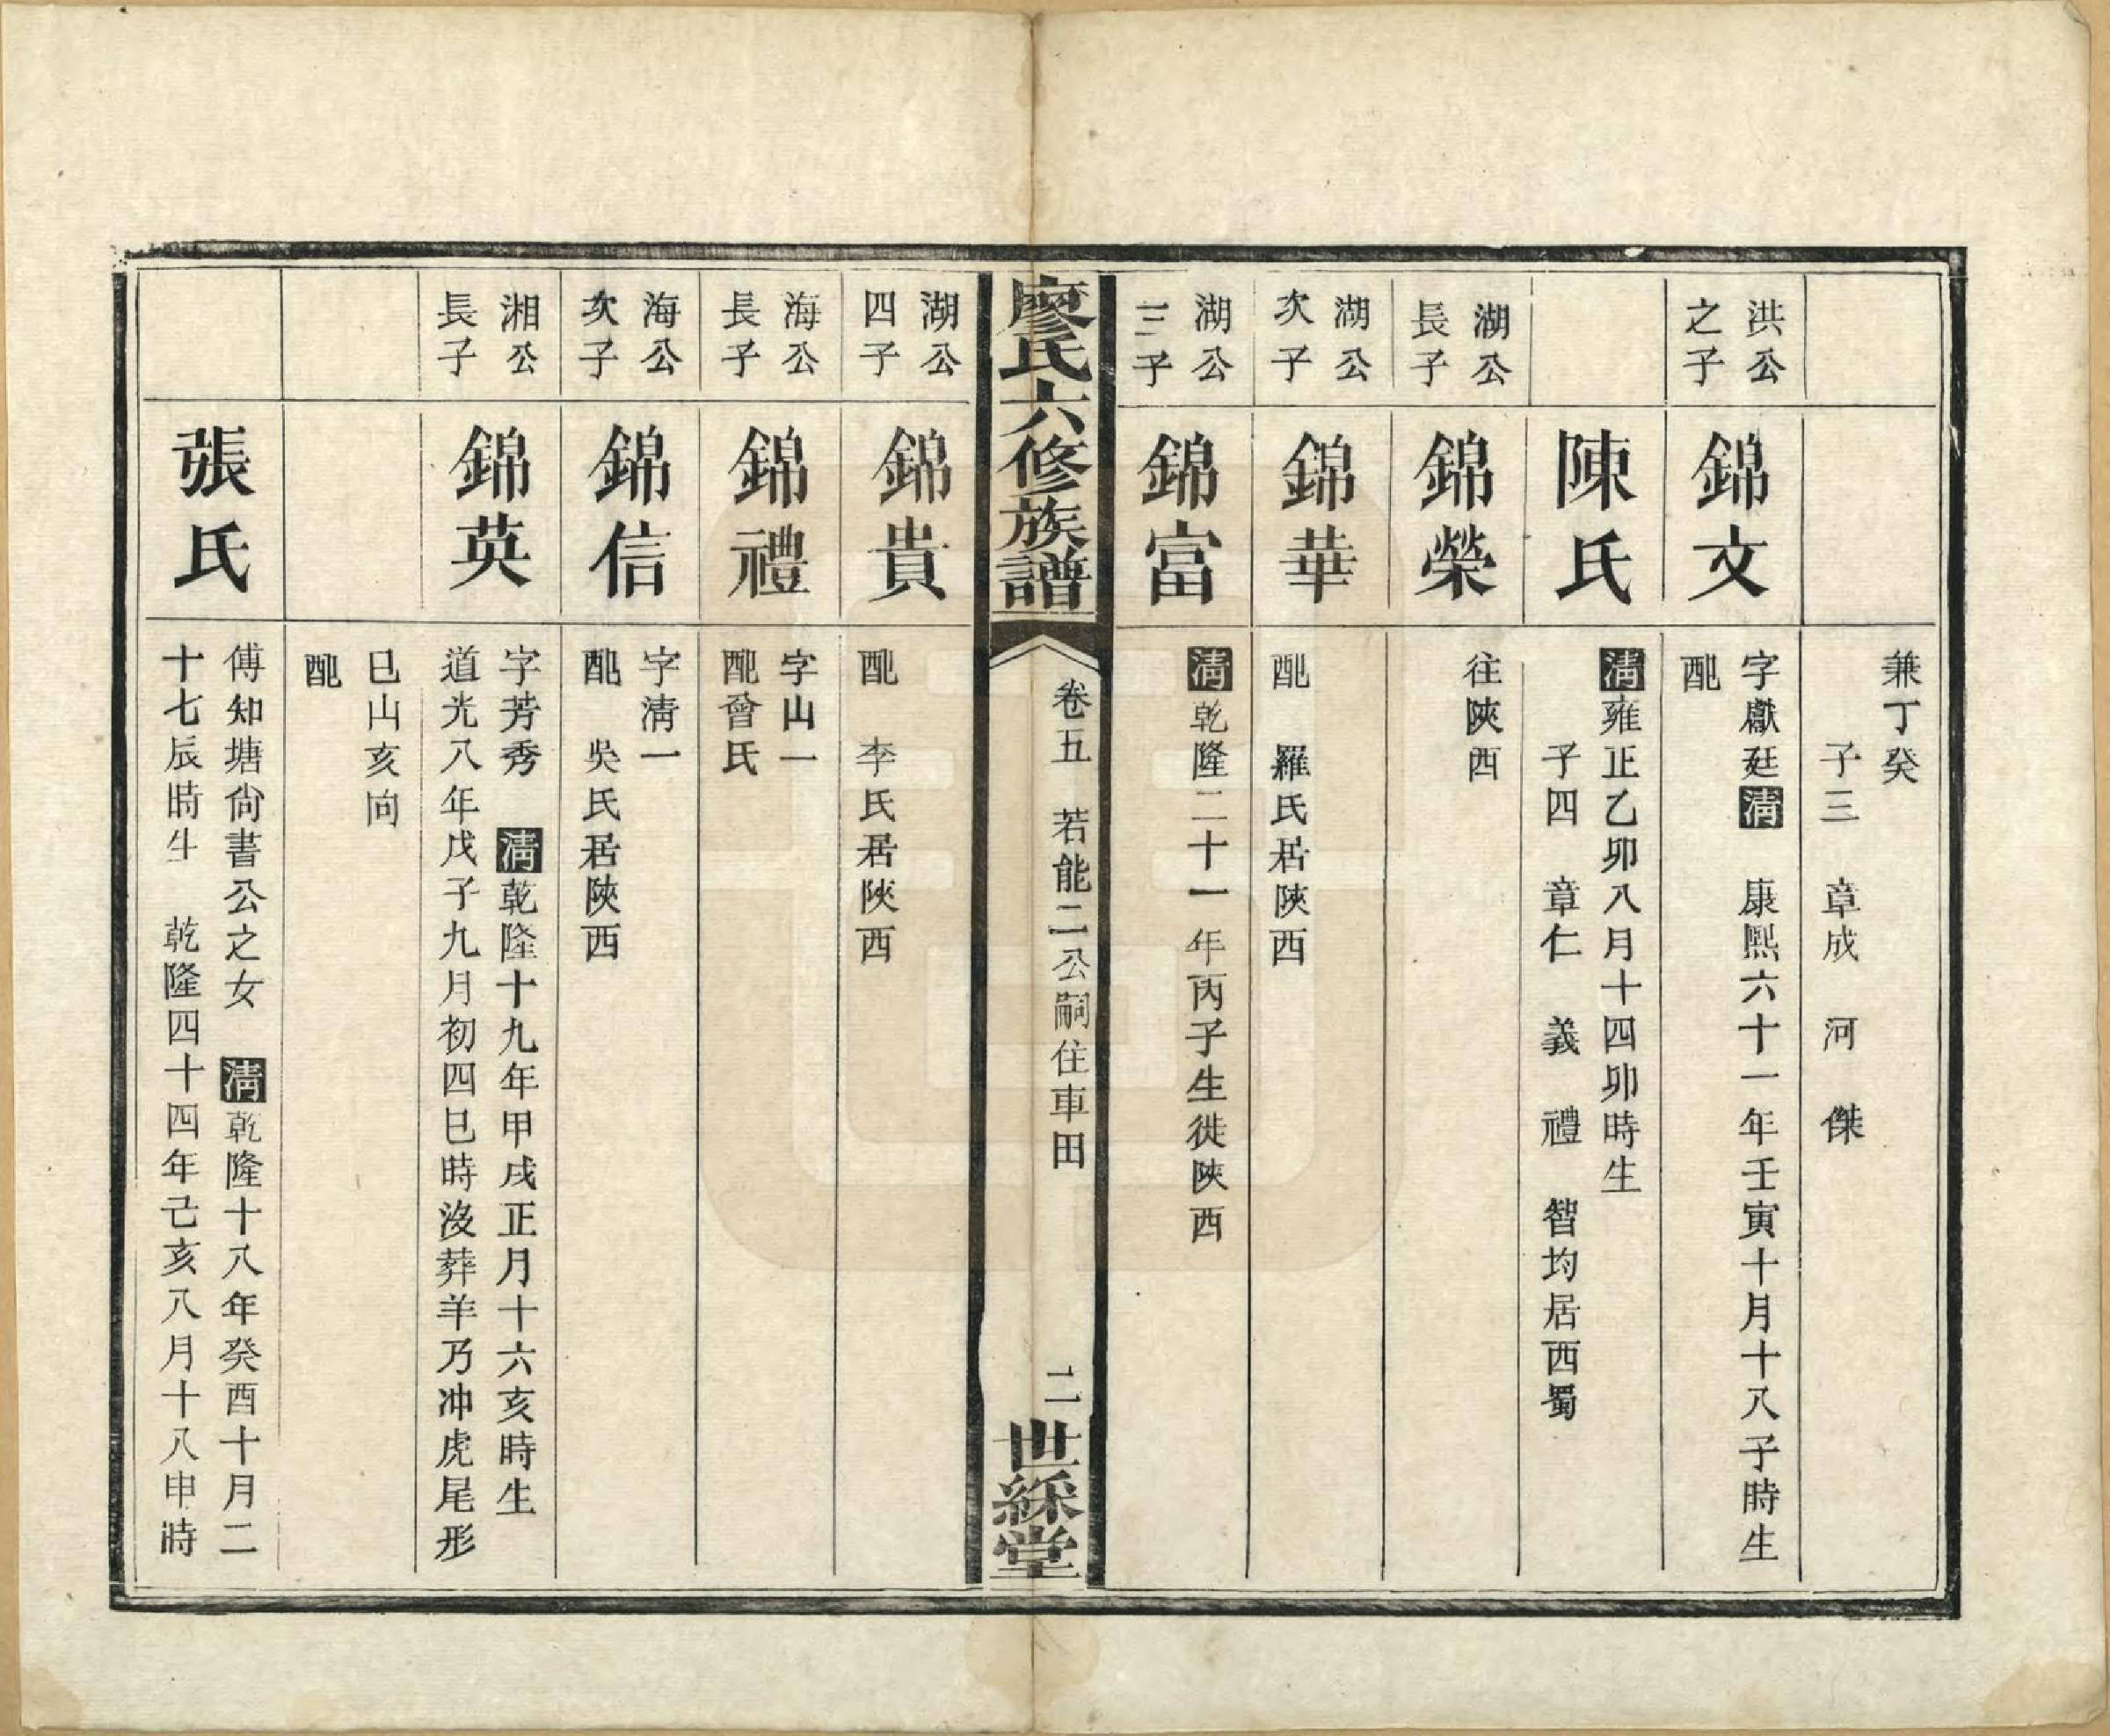 兼丁癸
子三　章成　河　傑
洪公
之子
錦文
字獻廷清　康熙六十一年壬寅十月十八子時生
配
陳氏
清雍正乙卯八月十四卯時生
子四　章仁　義　禮　智均居西蜀
湖公
長子
錦榮
往陝西
湖公
次子
錦華
配　羅氏居陝西
湖公
三子
錦富
清乾隆二十一年丙子生徙陝西
廖氏六修族譜
卷五　若能二公嗣住車田
二
世綵堂
湖公
四子
錦貴
配　李氏居陝西
海公
長子
錦禮
字山一
配曾氏
海公
次子
錦信
字清一
配　吳氏居陝西
湘公
長子
錦英
字芳秀　清乾隆十九年甲戌正月十六亥時生
道光八年戊子九月初四巳時沒葬羊乃冲虎尾形
巳山亥向
配
張氏
傅知塘尙書公之女　清乾隆十八年癸酉十月二
十七辰時生　乾隆四十四年己亥八月十八申時